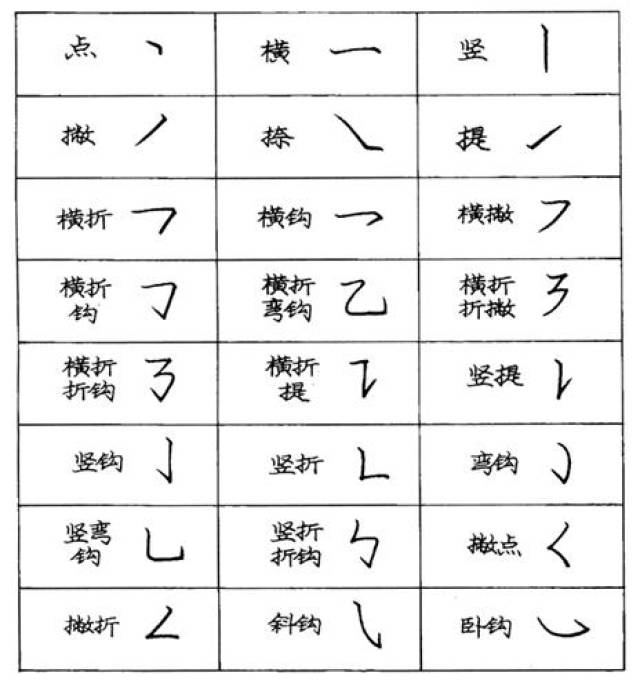 点 丶
横 一
竖 丨
撇 丿
捺 ㇏
提 ㇀
横折 𠃍
横钩 乛
横撇 ㇇
横折
钩 𠃌
横折
弯钩 乙
横折
折撇 ㇋
横折
折钩 ㇌
横折
提 ㇊
竖提 𠄌
竖钩 亅
竖折 𠃊
弯钩 ㇁
竖弯
钩 乚
竖折
折钩 ㇉
撇点 𡿨
撇折 𠃋
斜钩 ㇂
卧钩 ㇃